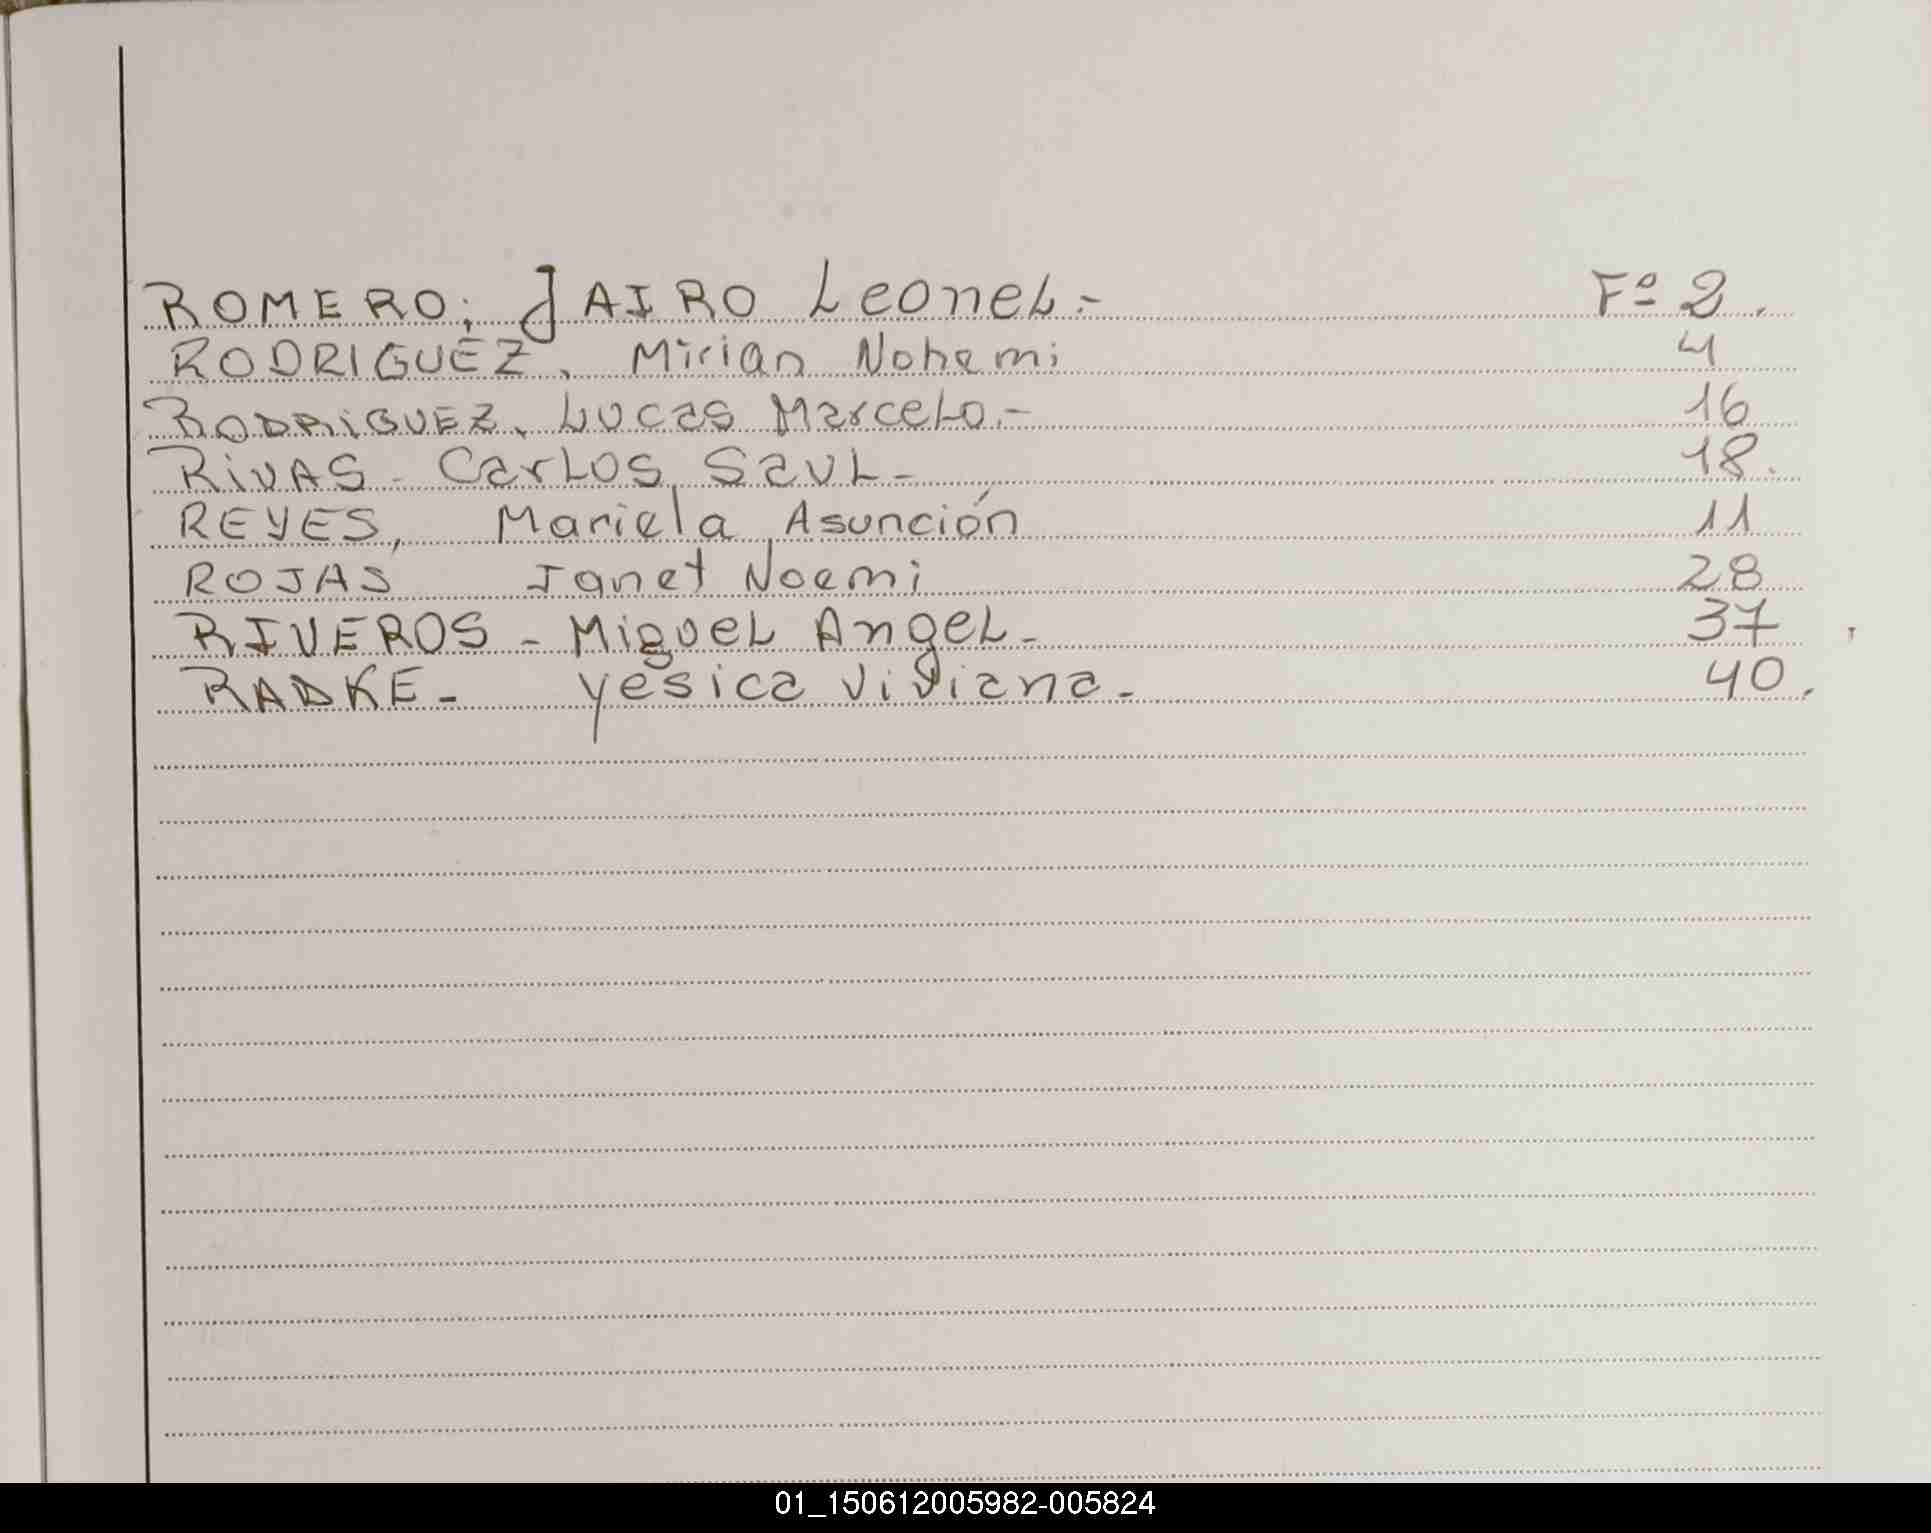 ROMERO; JAIRO Leonel.- Fº 2.
RODRIGUEZ, Mirian Nohemi 4
RODRiGUEZ, Lucas Marcelo.- 16
RiVAS - Carlos Saul - 18.
REYES, Mariela Asunción 11
ROJAS Janet Noemi 28
RIVEROS - Miguel Angel - 37
RADKE - yesica viviana - 40.
01_150612005982-005824